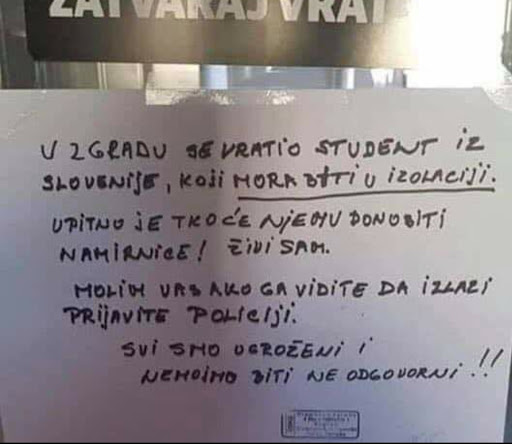 ZATVARAJ VRAT
U ZGRADU SE VRATIO STUDENT IZ
SLOVENIJE, KOJI MORA BITI U IZOLACIJI.
UPITNO JE TKO ĆE NJEMU DONOSITI
NAMIRNICE! ŽIVI SAM.
MOLIM VAS AKO GA VIDITE DA IZLAZI
PRIJAVITE POLICIJI.
SVI SMO UGROŽENI I
NEMOJMO BITI NE ODGOVORNI!!